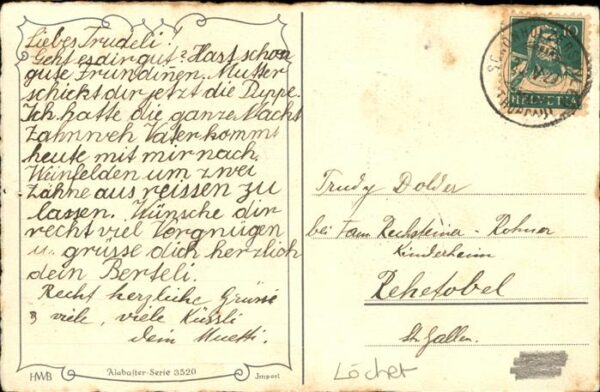 Liebes Trudeli!
Geht es dir gut? Hast schon
gute Frundinen. Mutter
schickt dir jetzt die Puppe.
Ich hatte die ganze Nacht
Zahnweh Vater kommt
heute mit mir nach
Wünfelden um zwei
Zähne aus reissen zu
lassen. Wünsche dir
recht viel Vergnügen
u. grüsse dich herzlich
dein Berteli.
Recht herzliche Grüsse
& viele, viele Küssli
dein Muetti.
HWB
Alabaster-Serie 3520
Import
10
HELVETIA
Trudy Dolder
bei Fam. Rechsteiner-Rohner
Kinderheim
Rehetobel
St. Gallen.
Löcher